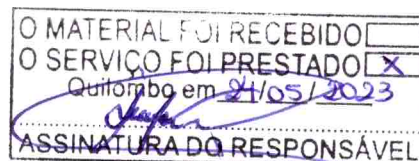 O MATERIAL FOI RECEBIDO
O SERVIÇO FOI PRESTADO X
Quilombo em 24/05/2023
ASSINATURA DO RESPONSÁVEL